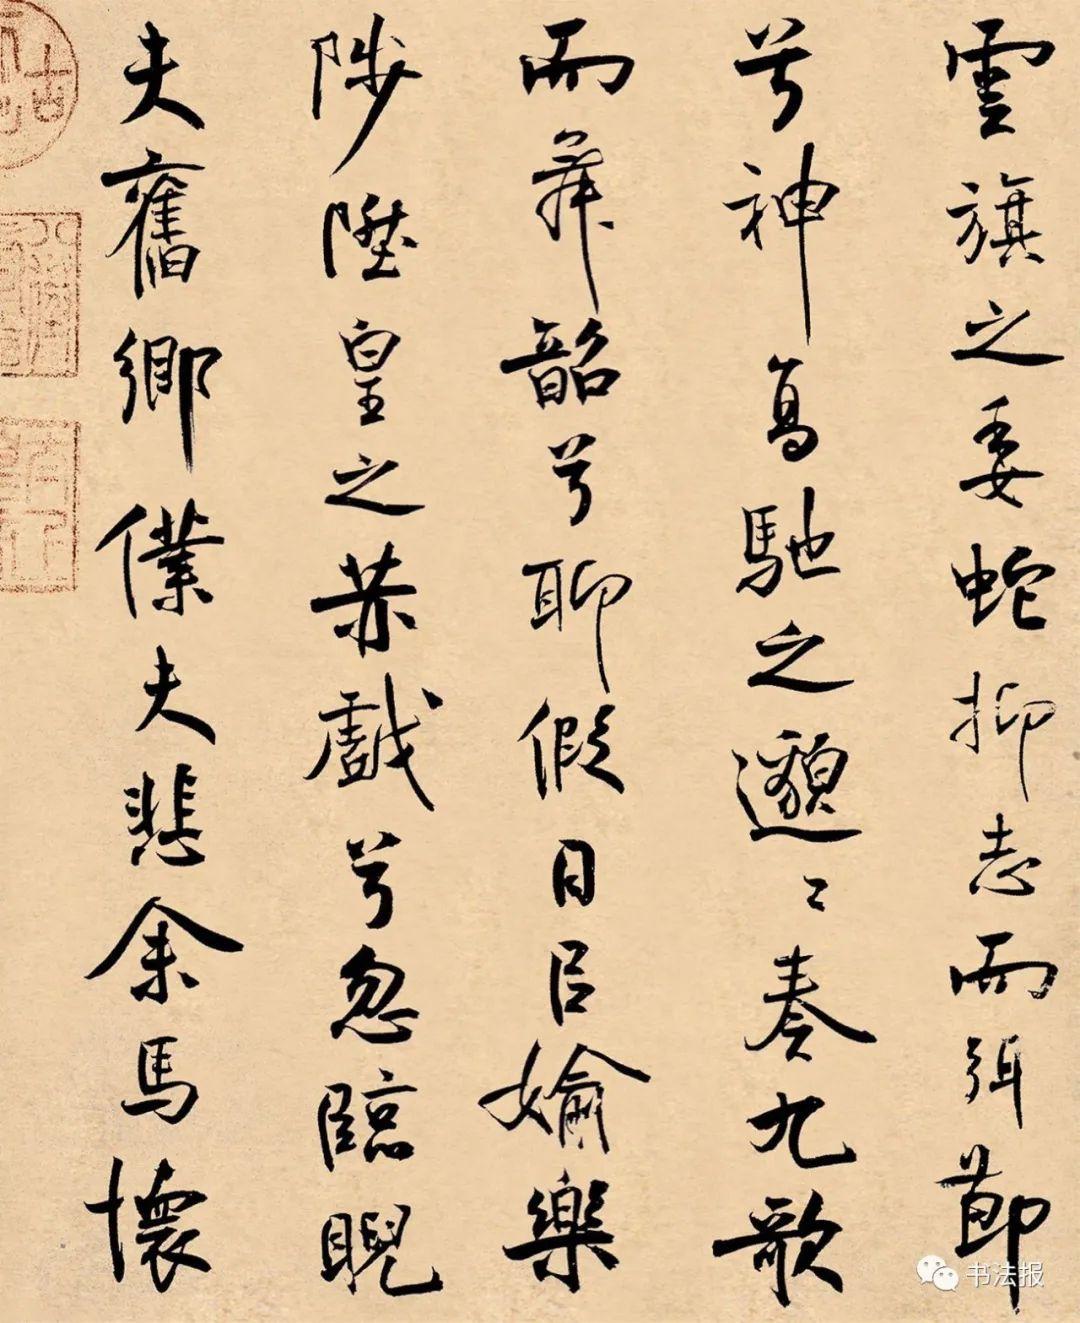 雲旗之委蛇抑志而弭節
兮神高馳之邈〻奏九歌
而舞韶兮聊假日㠯媮樂
陟陞皇之赫戲兮忽臨睨
夫舊鄉僕夫悲余馬懷
书法报